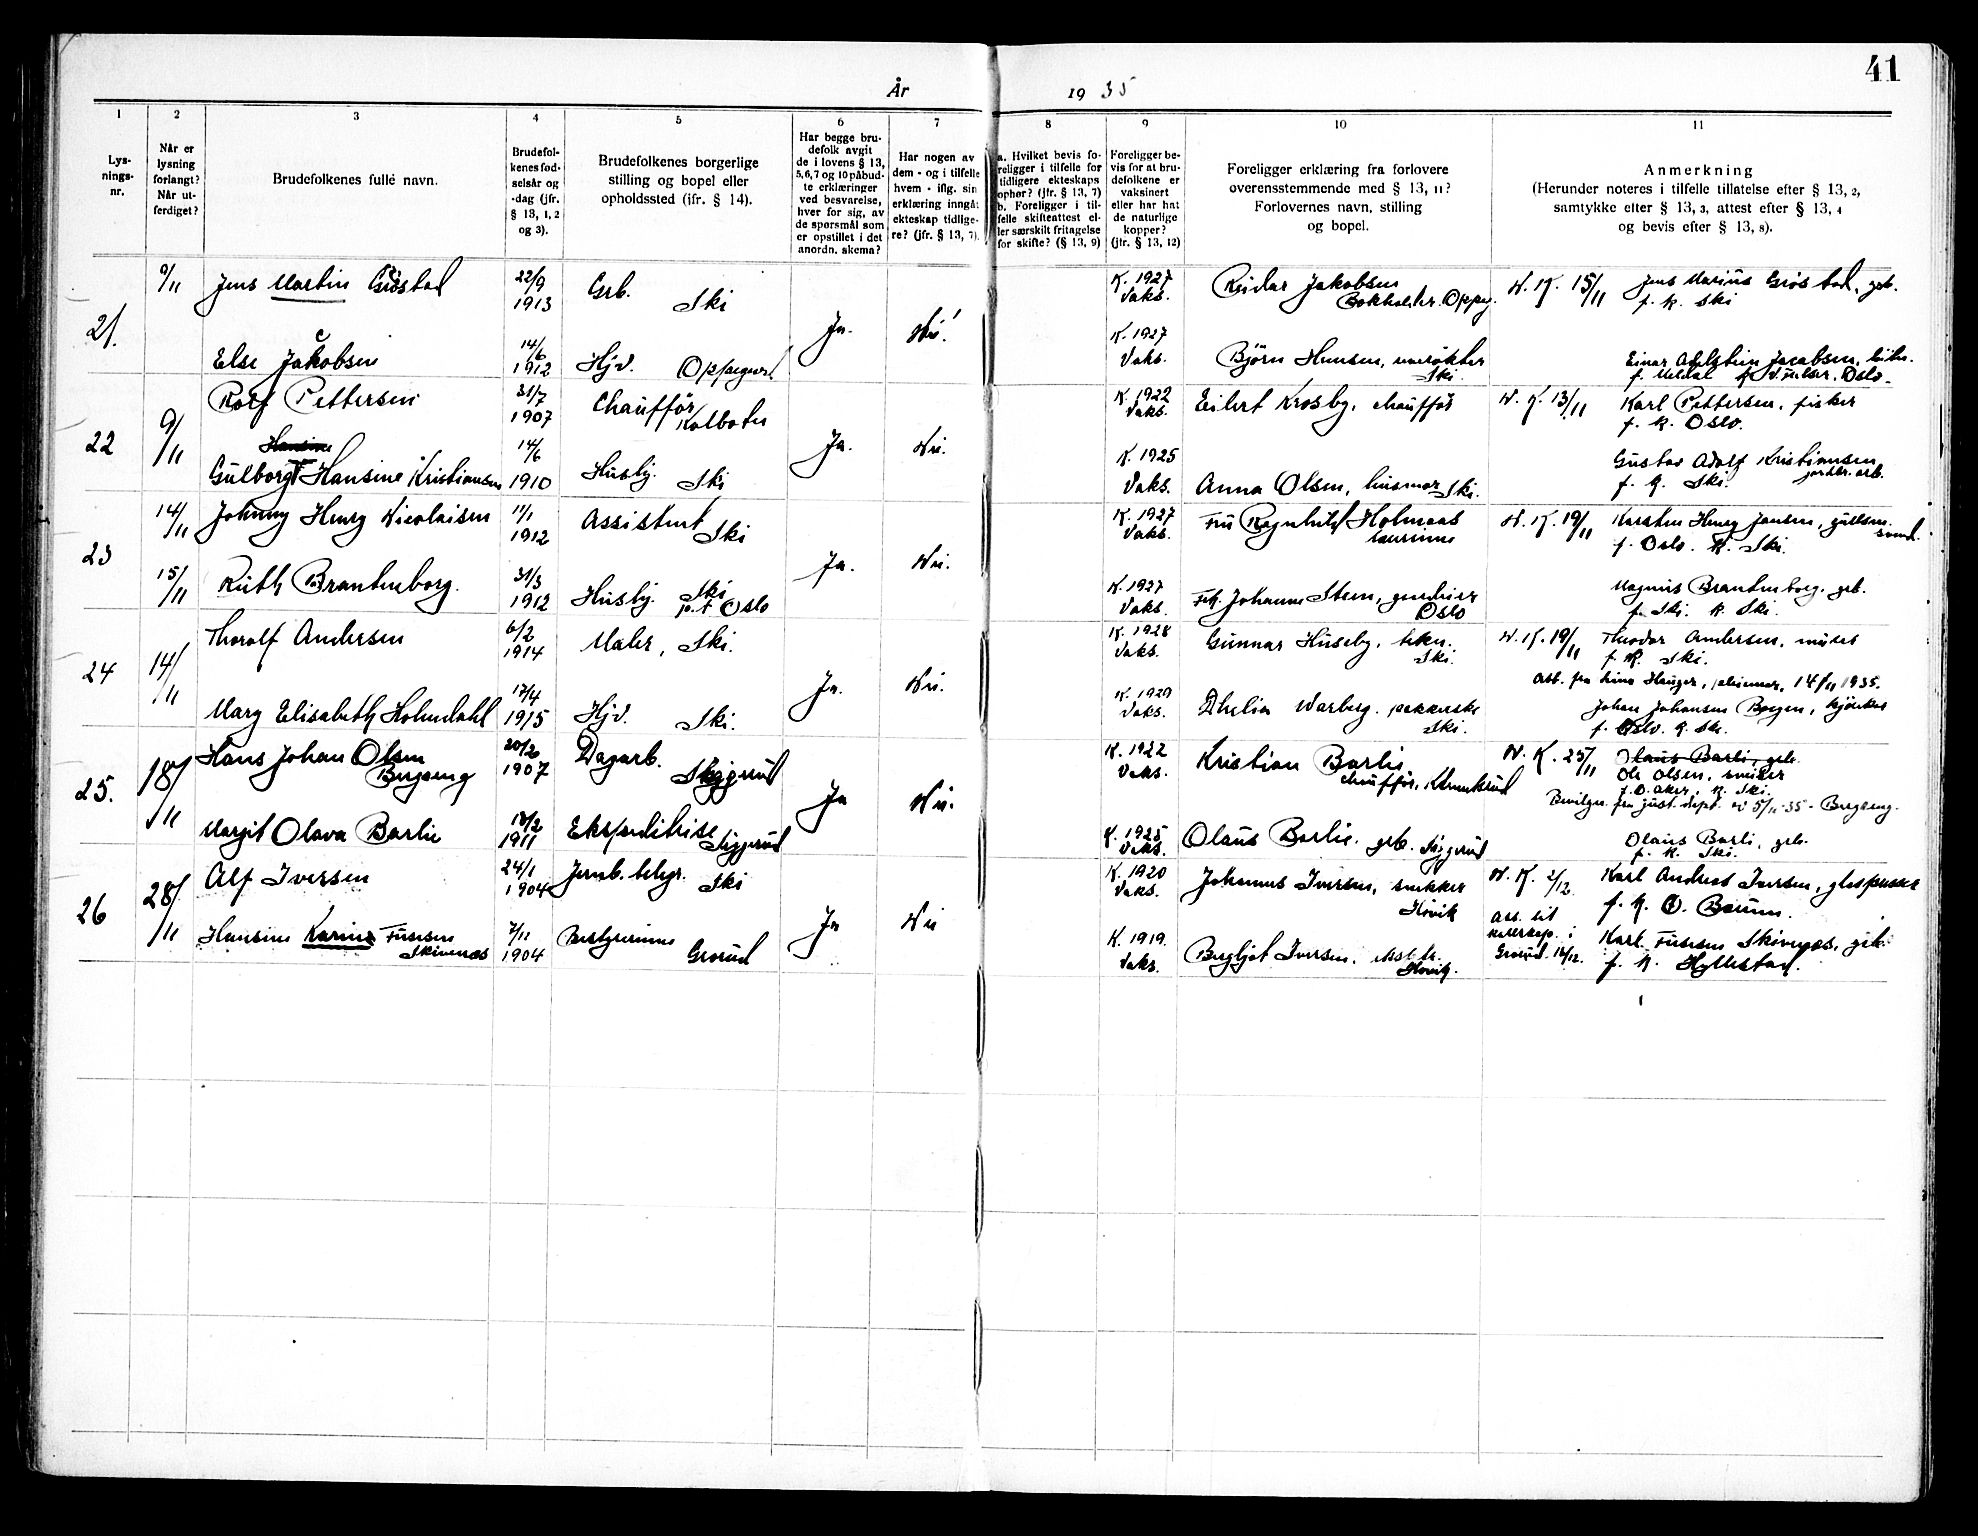 41
År 1935
1 2 3 4 5 6 7 8 9 10 11
Lys-
nings-
nr.
Når er
lysning
forlangt?
Når ut-
ferdiget?
Brudefolkenes fulle navn.
Brudefol-
kenes fød-
selsår og
-dag (jfr.
§ 13, 1, 2
og 3).
Brudefolkenes borgerlige
stilling og bopel eller
opholdssted (ifr. § 14).
Har begge bru-
defolk avgit
de i lovens § 13,
5, 6, 7 og 10 påbud-
te erklæringer
ved besvarelse,
hver for sig, av
de spørsmål som
er opstillet i det
anordn. skema?
Har nogen av
dem - og i tilfelle
hvem - iflg. sin
erklæring inngåt
ekteskap tidlige-
re? (jfr. § 13, 7).
a. Hvilket bevis fo-
religger i tilfelle for
tidligere ekteskaps
ophør? (jfr. § 13, 7)
b. Foreligger i til-
felle skifteattest el-
ler særskilt fritagelse
for skifte? (§ 13, 9)
Foreligger be-
vis for at bru-
defolkene er
vaksinert
eller har hat
de naturlige
kopper?
(jfr. § 13, 12)
Foreligger erklæring fra forlovere
overensstemmende med § 13, 11?
Forlovernes navn, stilling
og bopel.
Anmerkning
(Herunder noteres i tilfelle tillatelse efter § 13, 2,
samtykke efter § 13, 3, attest efter § 13, 4
og bevis efter § 13, 8).
21. 9/11 Jens Martin Grøstad 22/9 1913 Grb. Ski Ja. Nei! K. 1927 Vaks. Reidar Jakobsen
Bokholder. Oppeg. V. K. 15/11 Jens Marius Grøstad, grb.
f. k. Ski
Else Jakobsen 14/6 1912 Hjv. Oppegård K. 1927 Vaks. Björn Hansen, Ski. Einar Jacobsen,
f. Oslo.
22 9/11 Rolf Pettersen 31/7 1907 Chaufför Kolbotn Ja. Nei. K. 1922 Vaks. Eilert Krosby, chaufför V. K. 13/11 Karl Pettersen, fisker
f. k. Oslo.
Hansine
Gulborg Hansine Kristiansen 14/6 1910 Husby. Ski K. 1925 Vaks. Anna Olsen, husmor Ski. Gustav Adolf Kristiansen
jordbr. arb.
f. k. Ski.
23 14/11 Johnny Henry Nicolaisen 11/1 1912 Assistent Ski Ja. Nei. K. 1927 Vaks. Fru Ragnhild Holmaas
lærerinne V. K. 19/11 Karsten Henry Jansen, gullsm.
svend.
f. Oslo. k. Ski.
15/11 Ruth Brantenborg. 31/3 1912 Husby. Ski
p.t Oslo K. 1927 Vaks. Frk. Johanne Steen,
Oslo Magnus Brantenborg, grb.
f. Ski. k. Ski.
24 14/11 Thorolf Andersen 6/2 1914 Maler, Ski. Ja. Nei. K. 1928 Vaks. Gunnar Huseby, tekn.
Ski. V. K. 19/11 Theodor Andersen, murer
f. k. Ski.
Att. fra Hauger, 14/11 1935.
Mary Elisabeth Holmdahl 17/4 1915 Hjv. Ski. K. 1929 Vaks. Warberg, pakkerske
Ski. Johan Johansen Borgen,
f. Oslo. k. Ski.
25. 18/11 Hans Johan Olsen
Bergseng 20/2 1907 Dagarb. Siggerud Ja Nei. K. 1922 Vaks. Kristian Barlie
chaufför, V. K. 25/11 Olaus Barli, grb.
Ole Olsen, smiler
f. Ø. Aker, k. Ski.
Bevilgn. fra just. dept. 5/11-35 - Bergseng.
Margit Olava Barlie 18/2 1911 Ekspeditrise
Siggerud K. 1925 Vaks. Olaus Barlie. grb. Siggerud Olaus Barli, grb.
f. k. Ski.
26 28/11 Alf Iversen 24/1 1904 Jernb. betj. Ski Ja Nei K. 1920 Vaks. Johannes Iversen, snekker
Høvik V. K. 2/12. Karl Andreas Iversen, glaspusser
f. k. Ø. Bærum.
Hansine Karine Furesen
Skivenes 7/11 1904 Bestyrerinne Grorud K. 1919. Vaks. Bergljot Iversen,
Høvik. Att. til
ektesk. i
Grorud. 14/12. Karl Furesen Skivenæs, grb.
f. k. Hyllestad.